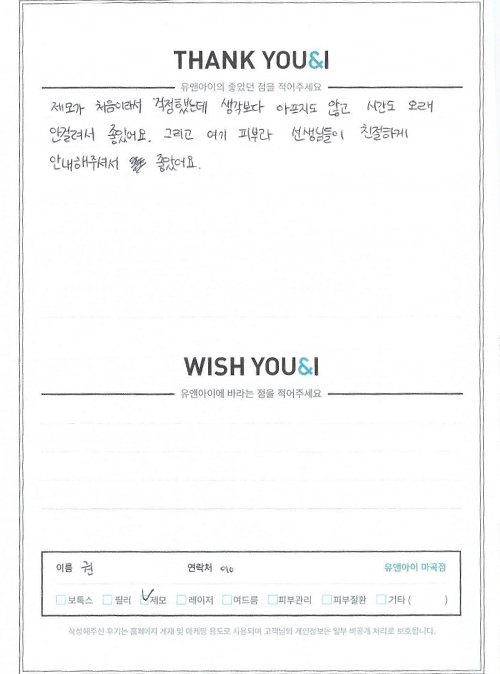 THANK YOU&I
유앤아이의 좋았던 점을 적어주세요
제모가 처음이라서 걱정했는데 생각보다 아프지도 않고 시간도 오래
안걸려서 좋았어요. 그리고 여기 피부과 선생님들이 친절하게
안내해주셔서 좋았어요.
WISH YOU&I
유앤아이에 바라는 점을 적어주세요
이름 권 연락처 010 유앤아이 마곡점
보톡스 필러 제모 레이저 여드름 피부관리 피부질환 기타 ( )
작성해주신 후기는 홈페이지 게재 및 마케팅 용도로 사용되며 고객님의 개인정보는 일부 비공개 처리로 보호됩니다.